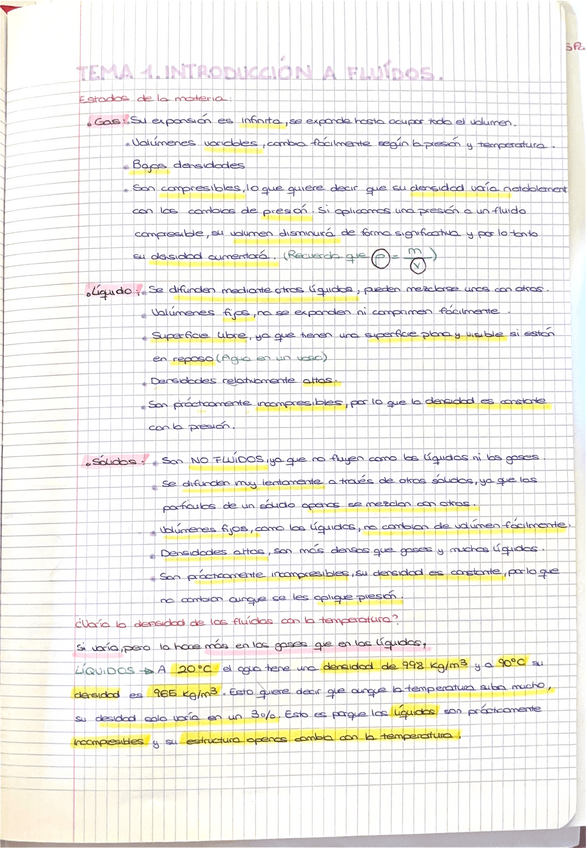 TEMA 1. INTRODUCCIÓN A FLUÍDOS.
Estados de la materia:
• Gas: Su expansión es infinita, se expande hasta ocupar todo el volumen.
• Volúmenes variables, cambia fácilmente según la presión y temperatura.
• Bajas densidades
• Son compresibles, lo que quiere decir que su densidad varía notablement
con los cambios de presión. Si aplicamos una presión a un fluido
compresible, su volumen disminuirá de forma significativa y por lo tanto
su dasidad aumentará. (Recuerda que ρ = m/v)
• Líquido: • Se difunden mediante otros líquidos, pueden mezclarse unos con otros.
• Volúmenes fijos, no se expanden ni comprimen fácilmente.
• Superficie libre, ya que tienen una superficie plana y visible si están
en reposo (Agua en un vaso)
• Densidades relativamente altas.
• Son prácticamente incompresibles, por lo que la densidad es constante
con la presión.
• Sólidos: • Son NO FLUÍDOS, ya que no fluyen como los líquidos ni los gases.
• Se difunden muy lentamente a través de otros sólidos, ya que las
partículas de un sólido apenas se mezclan con otras.
• Volúmenes fijos, como los líquidos, no cambian de volúmen fácilmente.
• Densidades altas, son más densos que gases y muchos líquidos.
• Son prácticamente incompresibles, su densidad es constante, por lo que
no cambian aunque se les aplique presión.
¿Varía la densidad de los fluídos con la temperatura?
Si varía, pero lo hace más en los gases que en los líquidos.
LÍQUIDOS → A 20°C el agua tiene una densidad de 998 kg/m³ y a 90°C su
densidad es 965 kg/m³. Esto quiere decir que aunque la temperatura suba mucho,
su desidad solo varía en un 3%. Esto es porque los líquidos son prácticamente
incompresibles y su estructura apenas cambia con la temperatura.